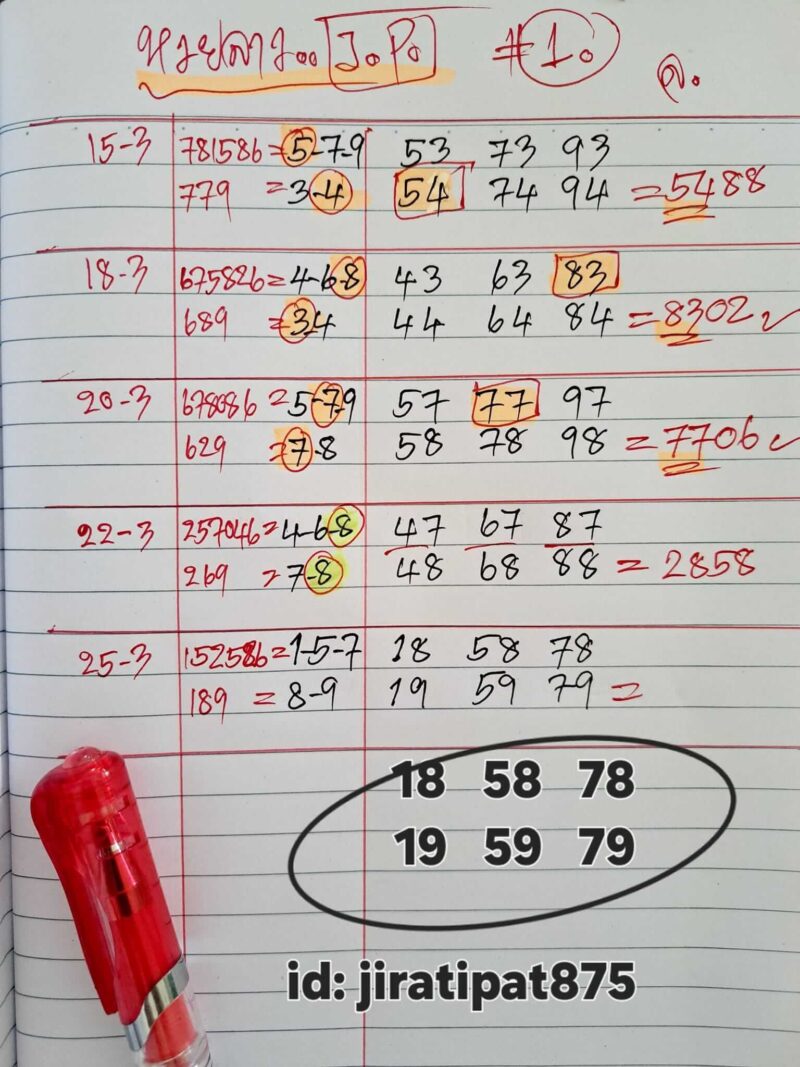 หวยลาว.. J.P. #1.
ล.
15-3 781586=5-7-9 53 73 93
779 =3-4 54 74 94 =5488
18-3 675826=4-6-8 43 63 83
689 =34 44 64 84 =8302✓
20-3 678086=5-7-9 57 77 97
629 =7-8 58 78 98 =7706✓
22-3 257046=4-6-8 47 67 87
269 =7-8 48 68 88 =2858
25-3 152586=1-5-7 18 58 78
189 =8-9 19 59 79 =
18 58 78
19 59 79
id: jiratipat875